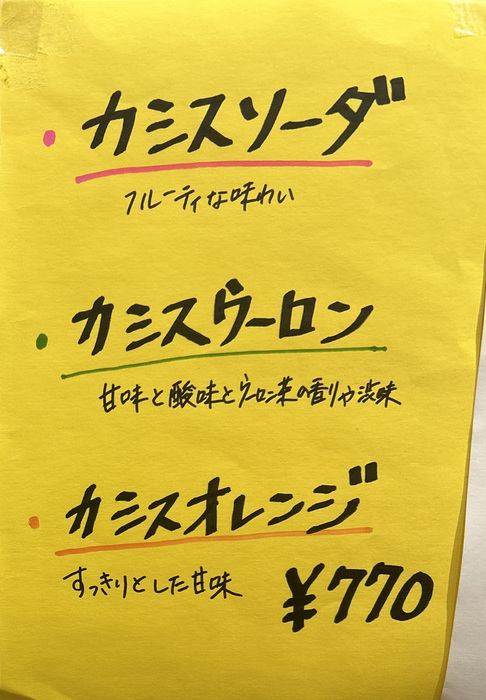 ・カシスソーダ
フルーティな味わい
・カシスウーロン
甘味と酸味とウーロン茶の香りや渋味
・カシスオレンジ
すっきりとした甘味
¥770